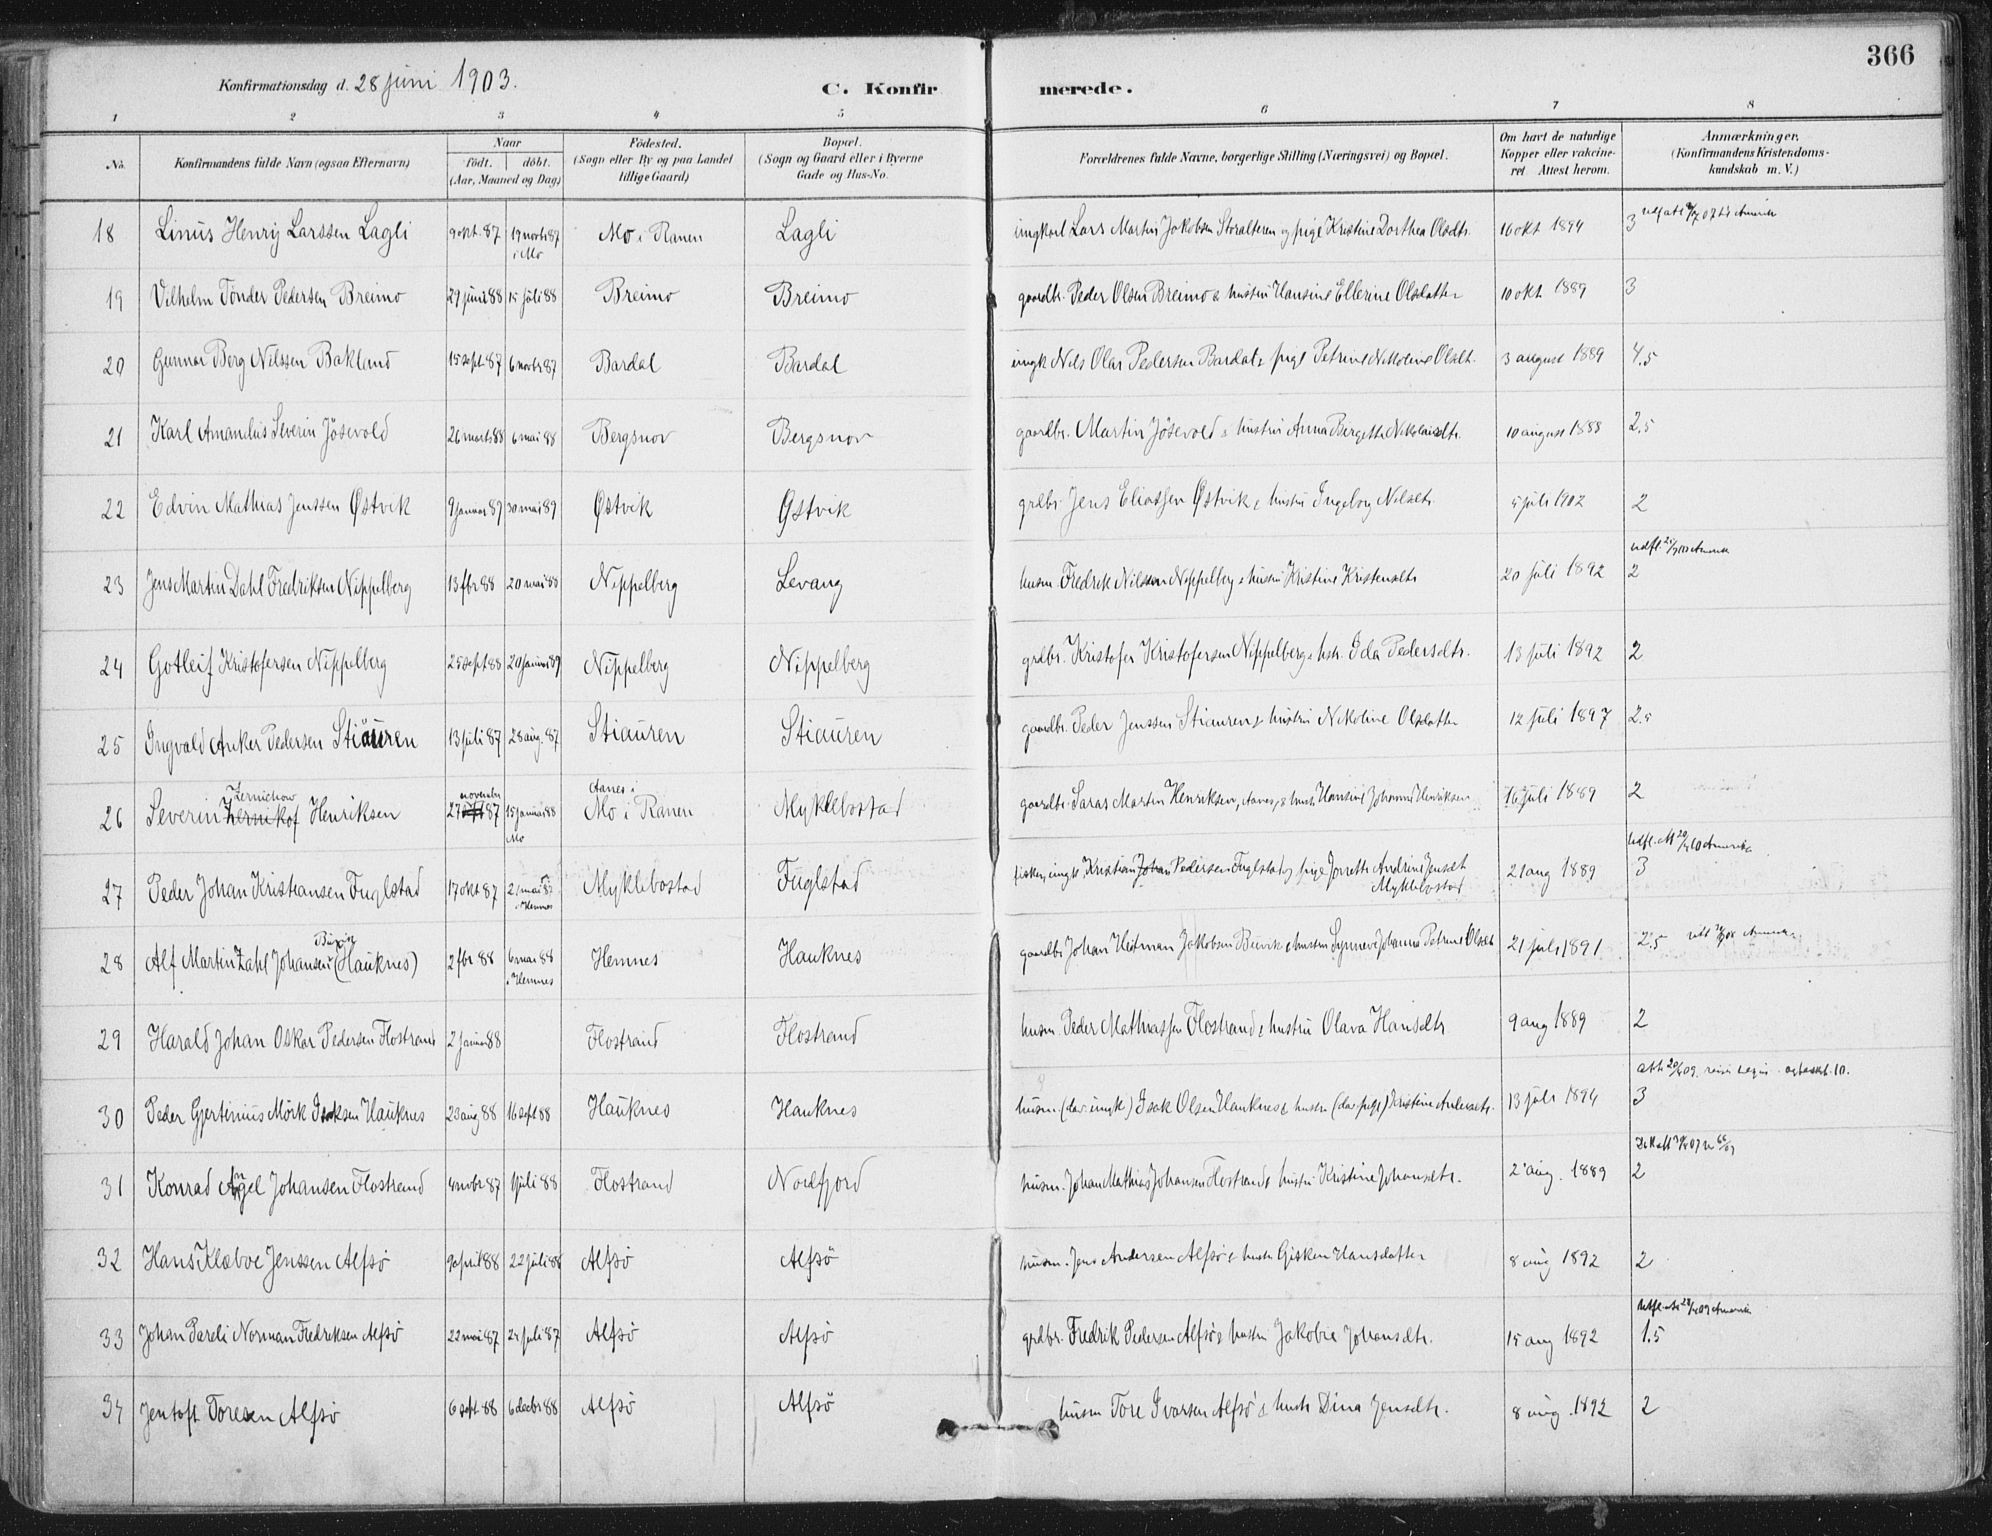 366
Konfirmationsdag d. 28 juni 1903.
C. Konfirmerede.
1 2 3 4 5 6 7 8
No. Konfirmandens fulde Navn (ogsaa Efternavn) Naar födt. döbt. (Aar, Maaned og Dag) Födested. (Sogn eller By og paa Landet tillige Gaard) Bopæl. (Sogn og Gaard eller i Byerne Gade og Hus-No. Forældrenes fulde Navne, borgerlige Stilling (Næringsvei) og Bopæl. Om havt de naturlige Kopper eller vakcineret Attest herom. Anmærkninger. (Konfirmandens Kristendomskundskab m. V.)
18 Linus Henrij Larssen Lagli 9 okt. 87 19 novbr 87 i Mo Mo i Ranen Lagli ungkarl Lars Martin Jakobsen Storalteren og pige Kristine Dorthea Olsdtr. 16 okt 1894 3
19 Vilhelm Tönder Pedersen Breimo 29 juni 88 15 juli 88 Breimo Breimo gaardbr. Peder Olsen Breimo & hustru Hansine Ellerine Olsdatter 10 okt. 1889 3
20 Gunnar Berg Nilssen Bakland 15 sept. 87 6 novbr 87 Bardal Bardal ungk Nils Olai Pedersen Bardal & pige Petrine Nikoline Olsdt. 3 august 1889 4.5
21 Karl Amandus Severin Jösevold 26 marts 88 6 mai 88 Bergsnov Bergsnov gaardbr. Martin Jösevold & hustru Anna Bergette Nikolaisdtr. 10 august 1888 2.5
22 Edvin Mathias Jenssen Østvik 9 januar 89 30 mai 89 Østvik Østvik grdbr. Jens Eliassen Østvik & hustru Ingeborg Nilsdtr. 5 juli 1902 2
23 Jens Martin Dahl Fredriksen Nippelberg 13 fbr 88 20 mai 88 Nippelberg Levang husm. Fredrik Nilssen Nippelberg & hustru Kristine Kristensdtr 20 juli 1892 2
24 Gotleif Kristofersen Nippelberg 25 sept 88 20 januar 89 Nippelberg Nippelberg grdbr. Kristofer Kristofersen Nippelberg & hstr. Ida Pedersdtr. 13 juli 1892 2
25 Ingvald Anker Pedersen Stiauren 13 juli 87 28 aug. 87 Stiauren Stiauren gaardbr. Peder Jenssen Stiauren & hustru Nikoline Olsdatter 12 juli 1897 2.5
26 Severin Zernichow Henriksen 27 november 87 15 januar 88 Mo Aanes i Mo i Ranen Myklebostad gaardbr. Saras Martin Henriksen, Aanes, & hustr Hansine Johanna Henriksen 16 juli 1889 2
27 Peder Johan Kristiansen Fuglstad 17 okt 87 i Hemnes Myklebostad Fuglstad fisker, ungk Kristian Johan Pedersen Fuglstad og pige Jorrette Andrine Jensdt Myklebostad 21 aug 1889 3
28 Alf Martin Zahl Johansen (Hauknes) 2 fbr 88 6 mai 88 i Hemnes Hemnes Hauknes gaardbr Johan Heitman Jakobsen Burvik & hustru Synnev Johanna Petrine Olsdt 21 juli 1891 2.5
29 Harald Johan Oskar Pedersen Flostrand 2 januar 88 Flostrand Flostrand husm. Peder Mathiassen Flostrand & hustru Olava Hansdtr 9 aug 1889 2
30 Peder Gjertinius Mörk Isaksen Hauknes 23 aug 88 16 sept 88 Hauknes Hauknes husm. (dav. ungk) Isak Olsen Hauknes & hustru (dav pige) Kristine Andersdtr. 13 juli 1894 3
31 Konrad Angel Johansen Flostrand 4 novbr 87 1 juli 88 Flostrand Nordfjord husm. Johan Mathias Johansen Flostrand & hustru Kristine Johansdtr. 2 aug. 1889 2
32 Hans Klæboe Jenssen Alfsö 9 april 88 22 juli 88 Alfsö Alfsö husm. Jens Andersen Alfsö & hustr Gisken Hansdatter 8 aug 1892 2
33 Johan Pareli Norman Fredriksen Alfsö 22 mai 87 24 juli 87 Alfsö Alfsö grdbr. Fredrik Pedersen Alfsö & hustru Jakobia Johansdtr. 15 aug 1892 1.5
34 Jentoft Toresen Alfsö 6 sept. 88 6 decbr 88 Alfsö Alfsö husm Tore Ivarsen Alfsö & hustr Dina Jensdtr. 8 aug. 1892 2